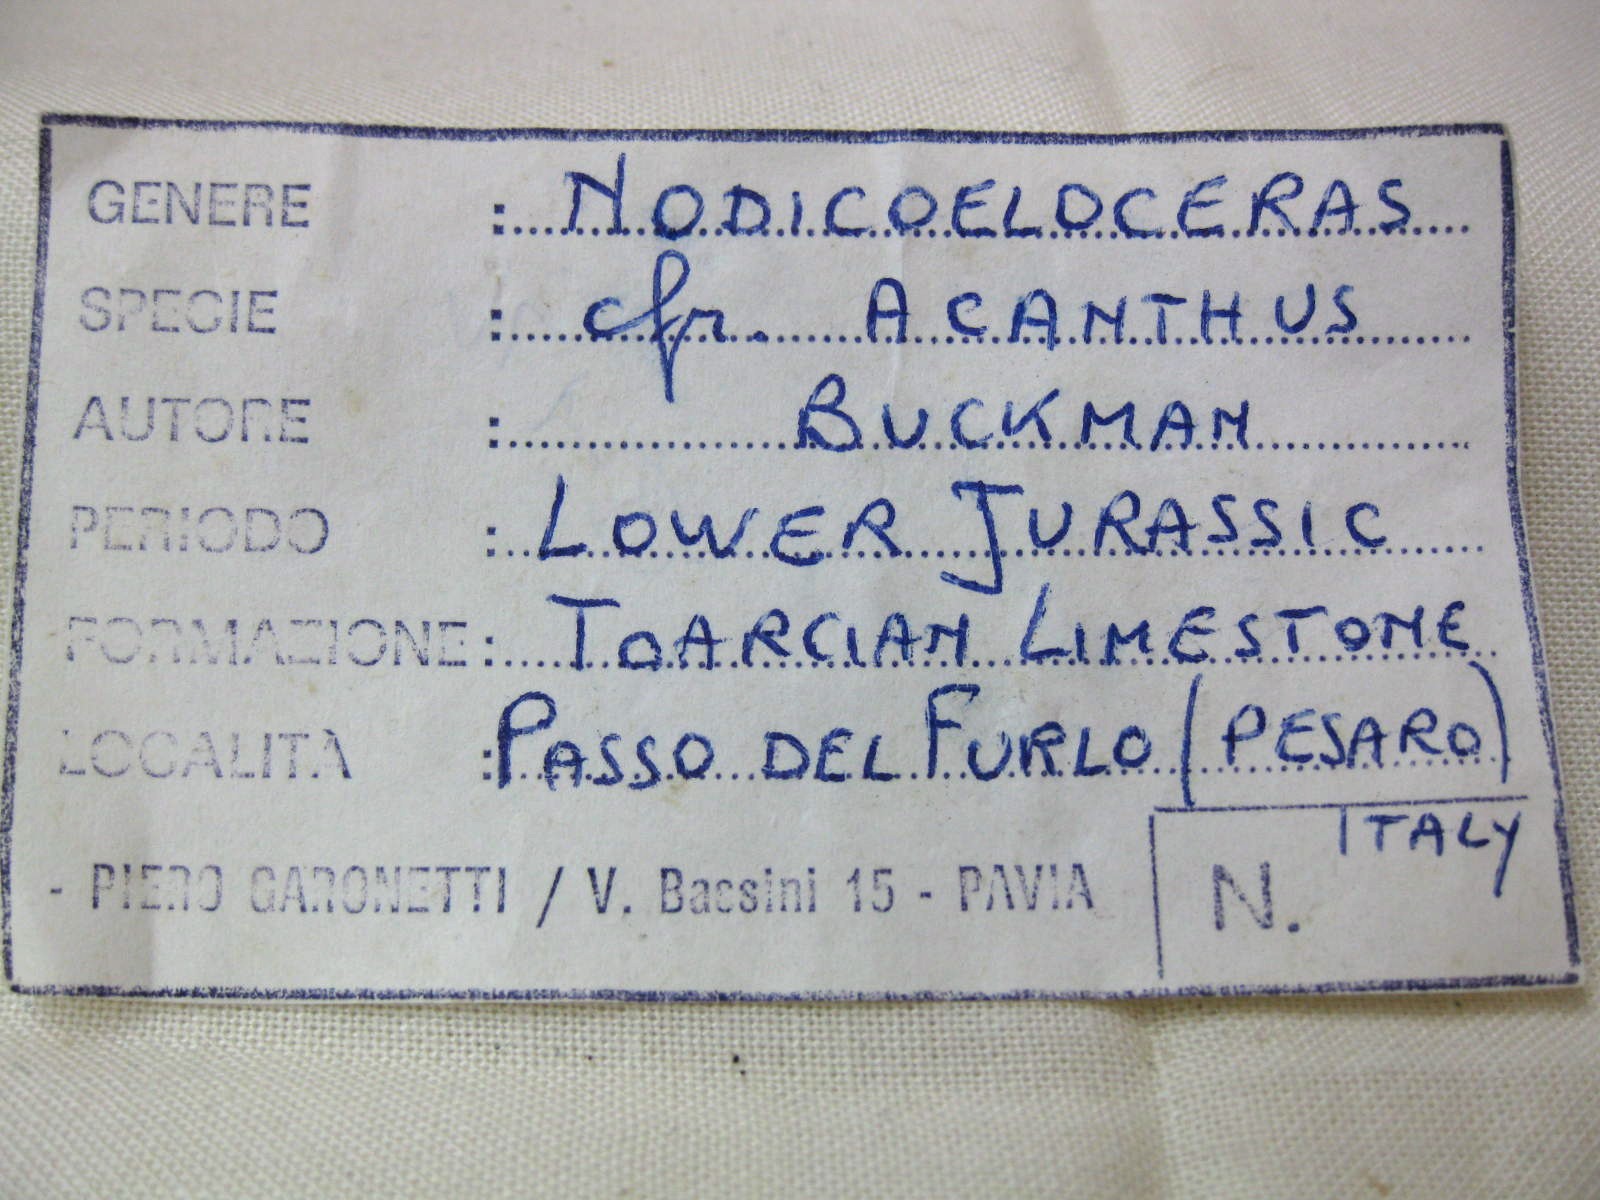 GENERE : NODICOELOCERAS
SPECIE : cfr. ACANTHUS
AUTORE : BUCKMAN
PERIODO : LOWER JURASSIC
FORMAZIONE : TOARCIAN LIMESTONE
LOCALITÀ : PASSO DEL FURLO (PESARO)
ITALY
- PIERO GARONETTI / V. Bassini 15 - PAVIA
N.